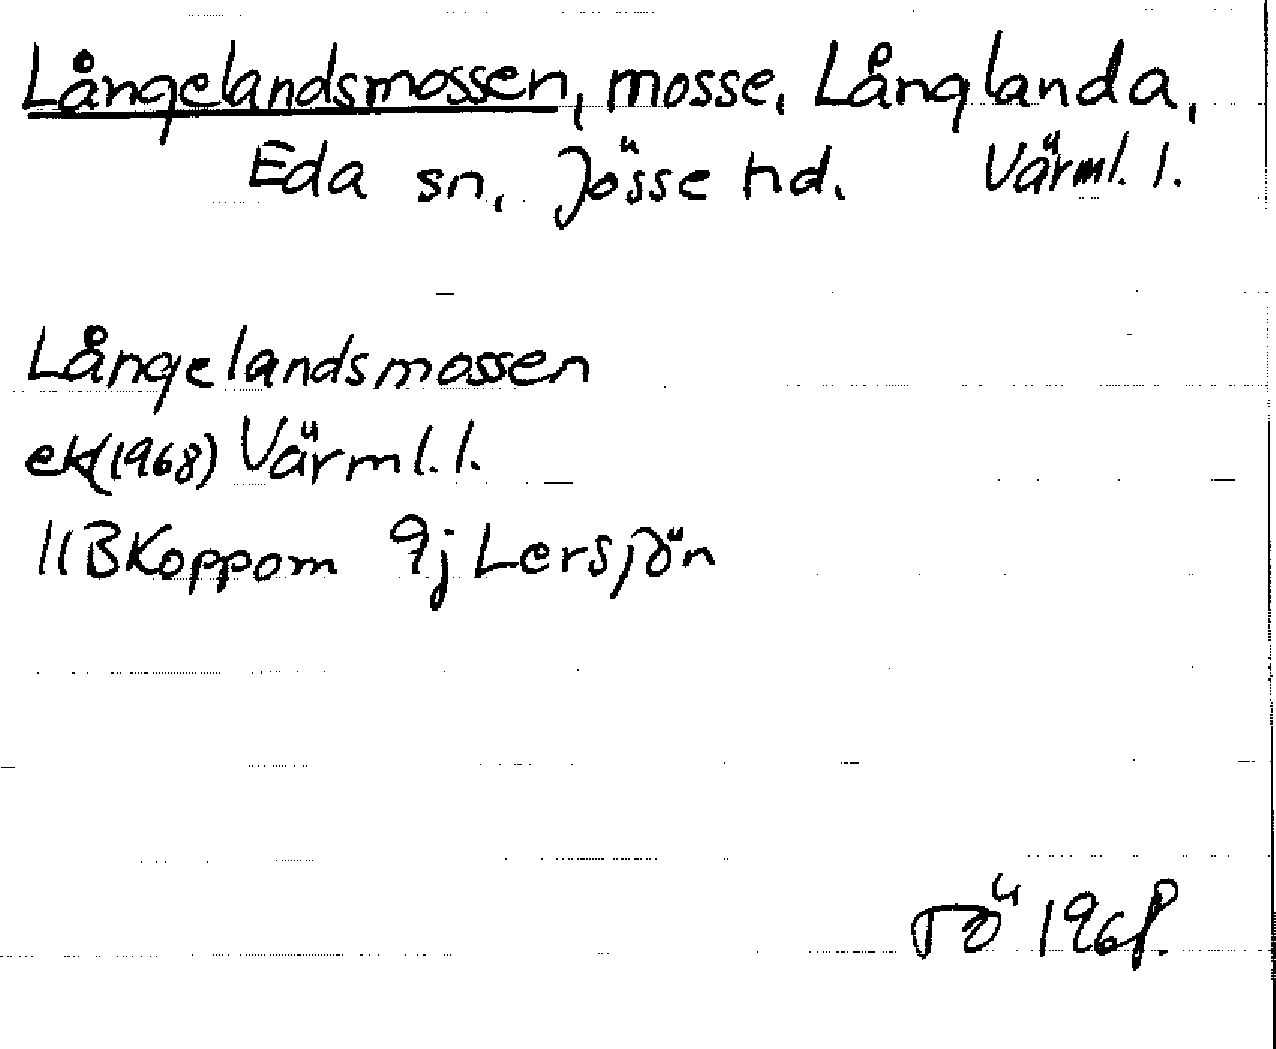 Långelandsmossen, mosse, Långlanda,
Eda sn, Jösse hd. Värml. l.
Långelandsmossen
ek(1968) Värml. l.
11BKoppom 9j Lersjön
TÖ 1968.